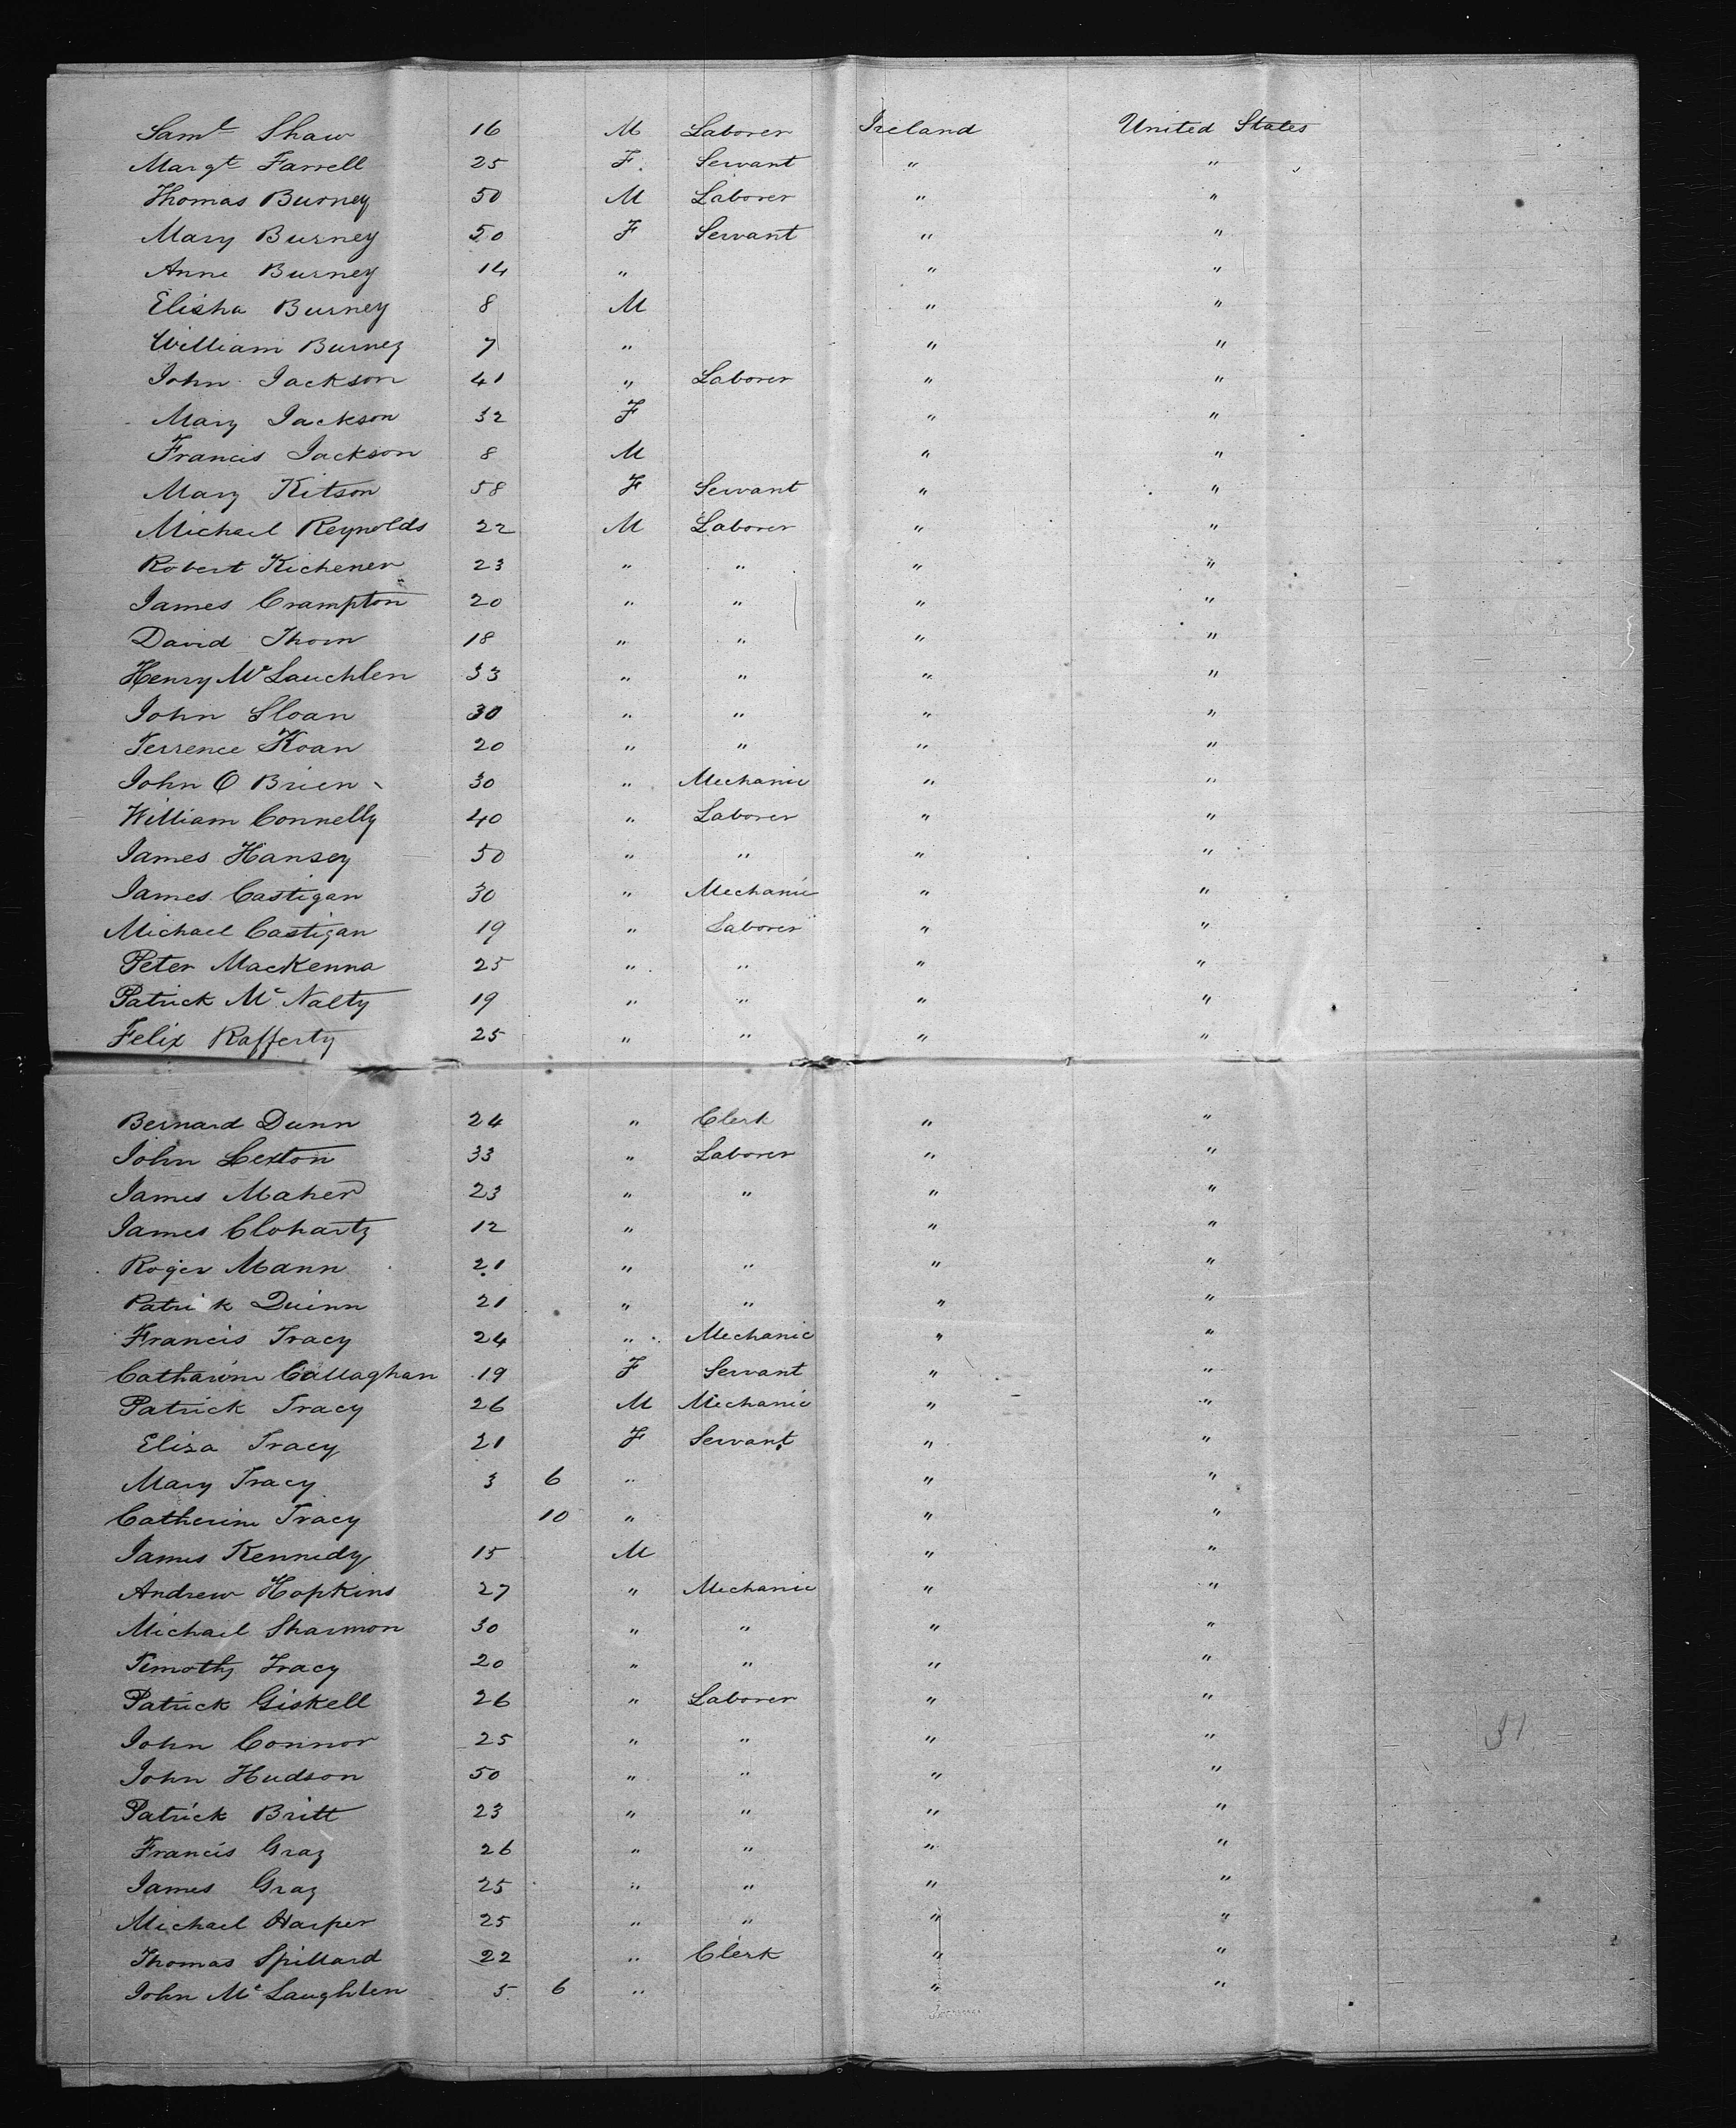 Saml Shaw 16 M Laborer Ireland United States
Margt Farrell 25 F. Servant " "
Thomas Burney 50 M Laborer " "
Mary Burney 50 F Servant " "
Anne Burney 14 " " "
Elisha Burney 8 M " "
William Burney 7 " " "
John Jackson 41 " Laborer " "
Mary Jackson 32 F " "
Francis Jackson 8 M " "
Mary Kitson 58 F Servant " "
Michael Reynolds 22 M Laborer " "
Robert Kichener 23 " " " "
James Crampton 20 " " " "
David Thorn 18 " " " "
Henry Mc Lauchlen 33 " " " "
John Sloan 30 " " " "
Terrence Koan 20 " " " "
John O Brien 30 " Mechanic " "
William Connelly 40 " Laborer " "
James Hansey 50 " " " "
James Castigan 30 " Mechanic " "
Michael Castigan 19 " Laborer " "
Peter MacKenna 25 " " " "
Patrick Mc Nalty 19 " " " "
Felix Rafferty 25 " " " "
Bernard Dunn 24 " Clerk " "
John Lexton 33 " Laborer " "
James Maher 23 " " " "
James Cloharty 12 " " "
Roger Mann 21 " " " "
Patrick Quinn 21 " " " "
Francis Tracy 24 " Mechanic " "
Catharine Callaghan 19 F Servant " "
Patrick Tracy 26 M Mechanic " "
Eliza Tracy 21 F Servant " "
Mary Tracy 3 6 " " "
Catherine Tracy 10 " " "
James Kennedy 15 M " "
Andrew Hopkins 27 " Mechanic " "
Michael Sharmon 30 " " " "
Timothy Tracy 20 " " " "
Patrick Giskell 26 " Laborer " "
John Connor 25 " " " "
John Hudson 50 " " " "
Patrick Britt 23 " " " "
Francis Gray 26 " " " "
James Gray 25 " " " "
Michael Harper 25 " " " "
Thomas Spillard 22 " Clerk " "
John Mc Laughlen 5 6 " " "
31